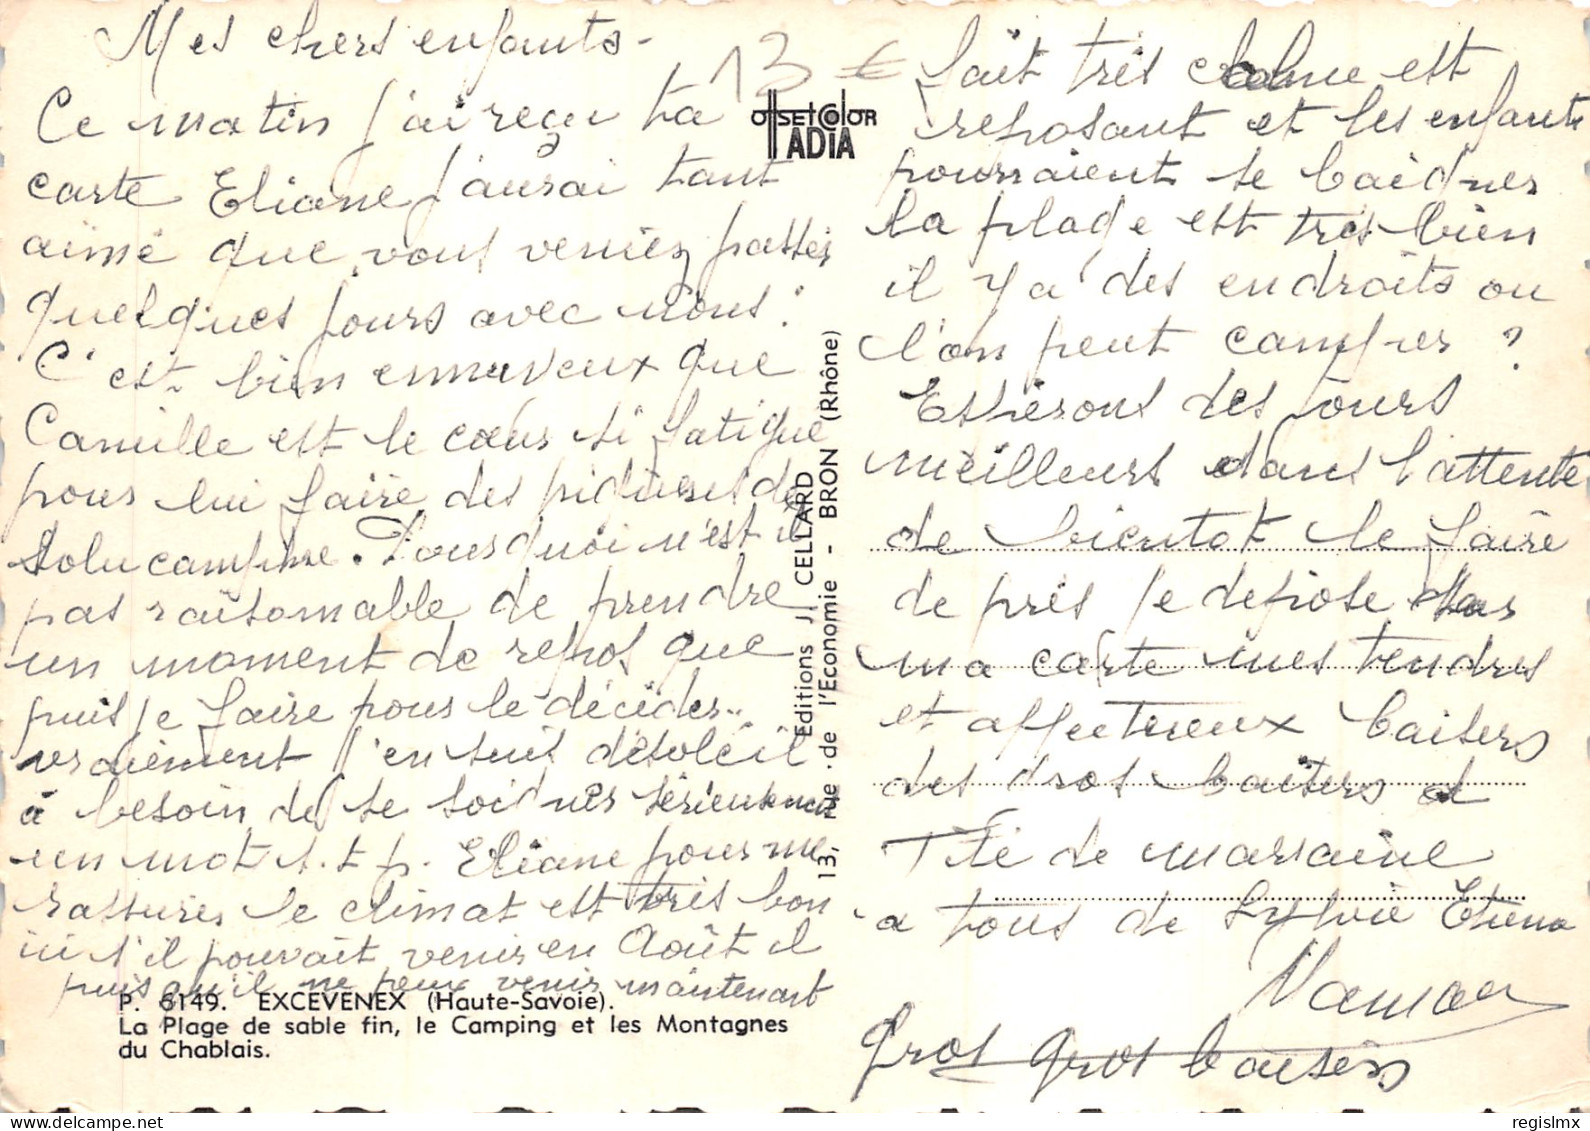 Mes chers enfants -
Ce matin j'ai reçu ta
carte Eliane j'aurai tant
aimé que vous veniez passer
quelques jours avec nous.
C'est bien ennuyeux que
Camille est le cœur si fatigué
pour lui faire des piqures de
Solucamphre. Pourquoi n'est il
pas raisonnable de prendre
un moment de repos que
puis je faire pour le décider..
vraiement j'en suis désolée il
à besoin de se soigner sérieusement
un mot s.t.p. Eliane pour me
rassurer, le climat est très bon
ici s'il pouvait venir en Août il
puisqu'il ne peux venir maintenant
P. 6149. EXCEVENEX (Haute-Savoie).
La Plage de sable fin, le Camping et les Montagnes
du Chablais.
13 €
OffsetColor
ADIA
Editions J. CELLARD
13, Rue de l'Economie - BRON (Rhône)
fait très calme est
reposant et les enfants
pourraient se baigner
la plage est très bien
il y a des endroits ou
l'on peut camper ?
Espérons des jours
meilleurs dans l'attente
de bientot le faire
de près je depose dans
ma carte mes tendres
et affectueux baisers
des gros baisers a
Titi de marraine
a tous de Sylvie Etienne
Maman
gros gros baisers
regislmx